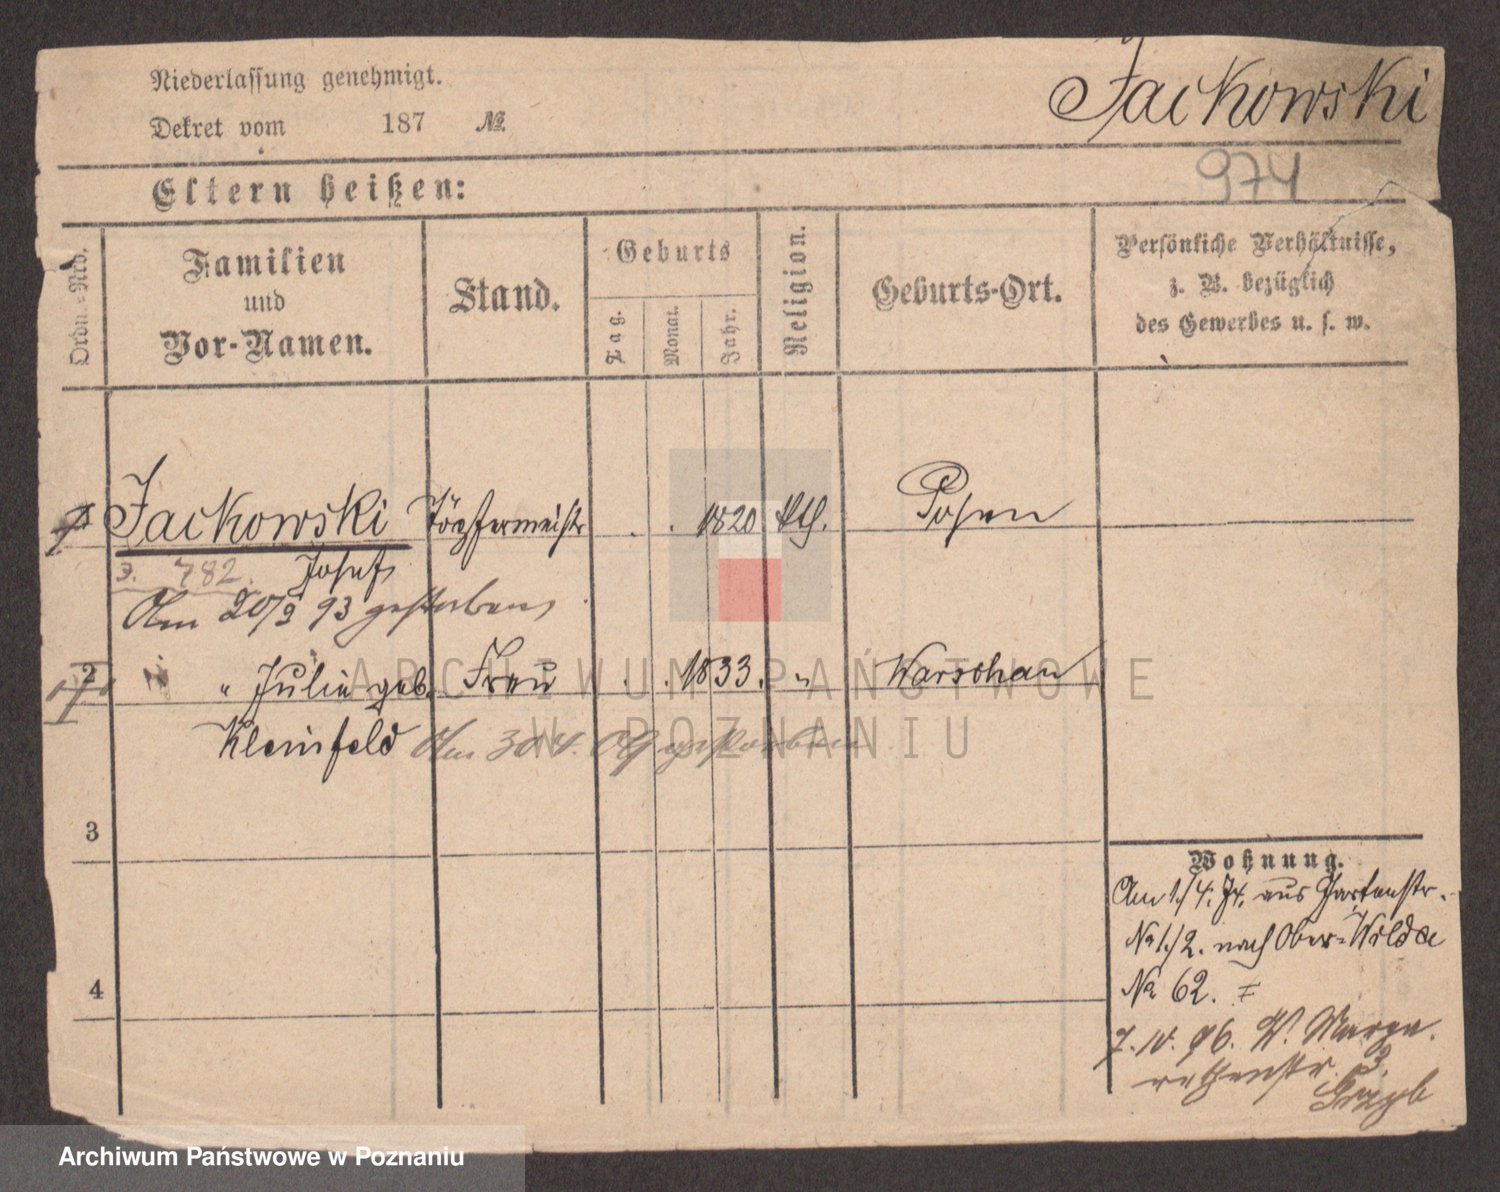 Niederlassung genehmigt.
Jackowski
Dekret vom 187 №
974
Eltern heißen:
Ordn.-Nro.
Familien und Vor-Namen.
Stand.
Geburts
Tag.
Monat.
Jahr.
Religion.
Geburts-Ort.
Persönliche Verhältnisse,
z. B. bezüglich
des Gewerbes u. s. w.
1 Jackowski Töpfermeistr . . 1820 kth. Posen
z. 782. Josef
Am 20/9 93 gestorben
2 " Julie geb. Frau . . 1833. " Warschau
Kleinfeld Am 30.4.09 gestorben
3
4
Wohnung.
Am 1./4. 74. aus Gartenstr.
No 1./2. nach Ober-Wilda
No 62.
7. IV. 96. W. Marga-
rethenstr. 3.
Grzyb
ARCHIWUM PAŃSTWOWE
W POZNANIU
Archiwum Państwowe w Poznaniu